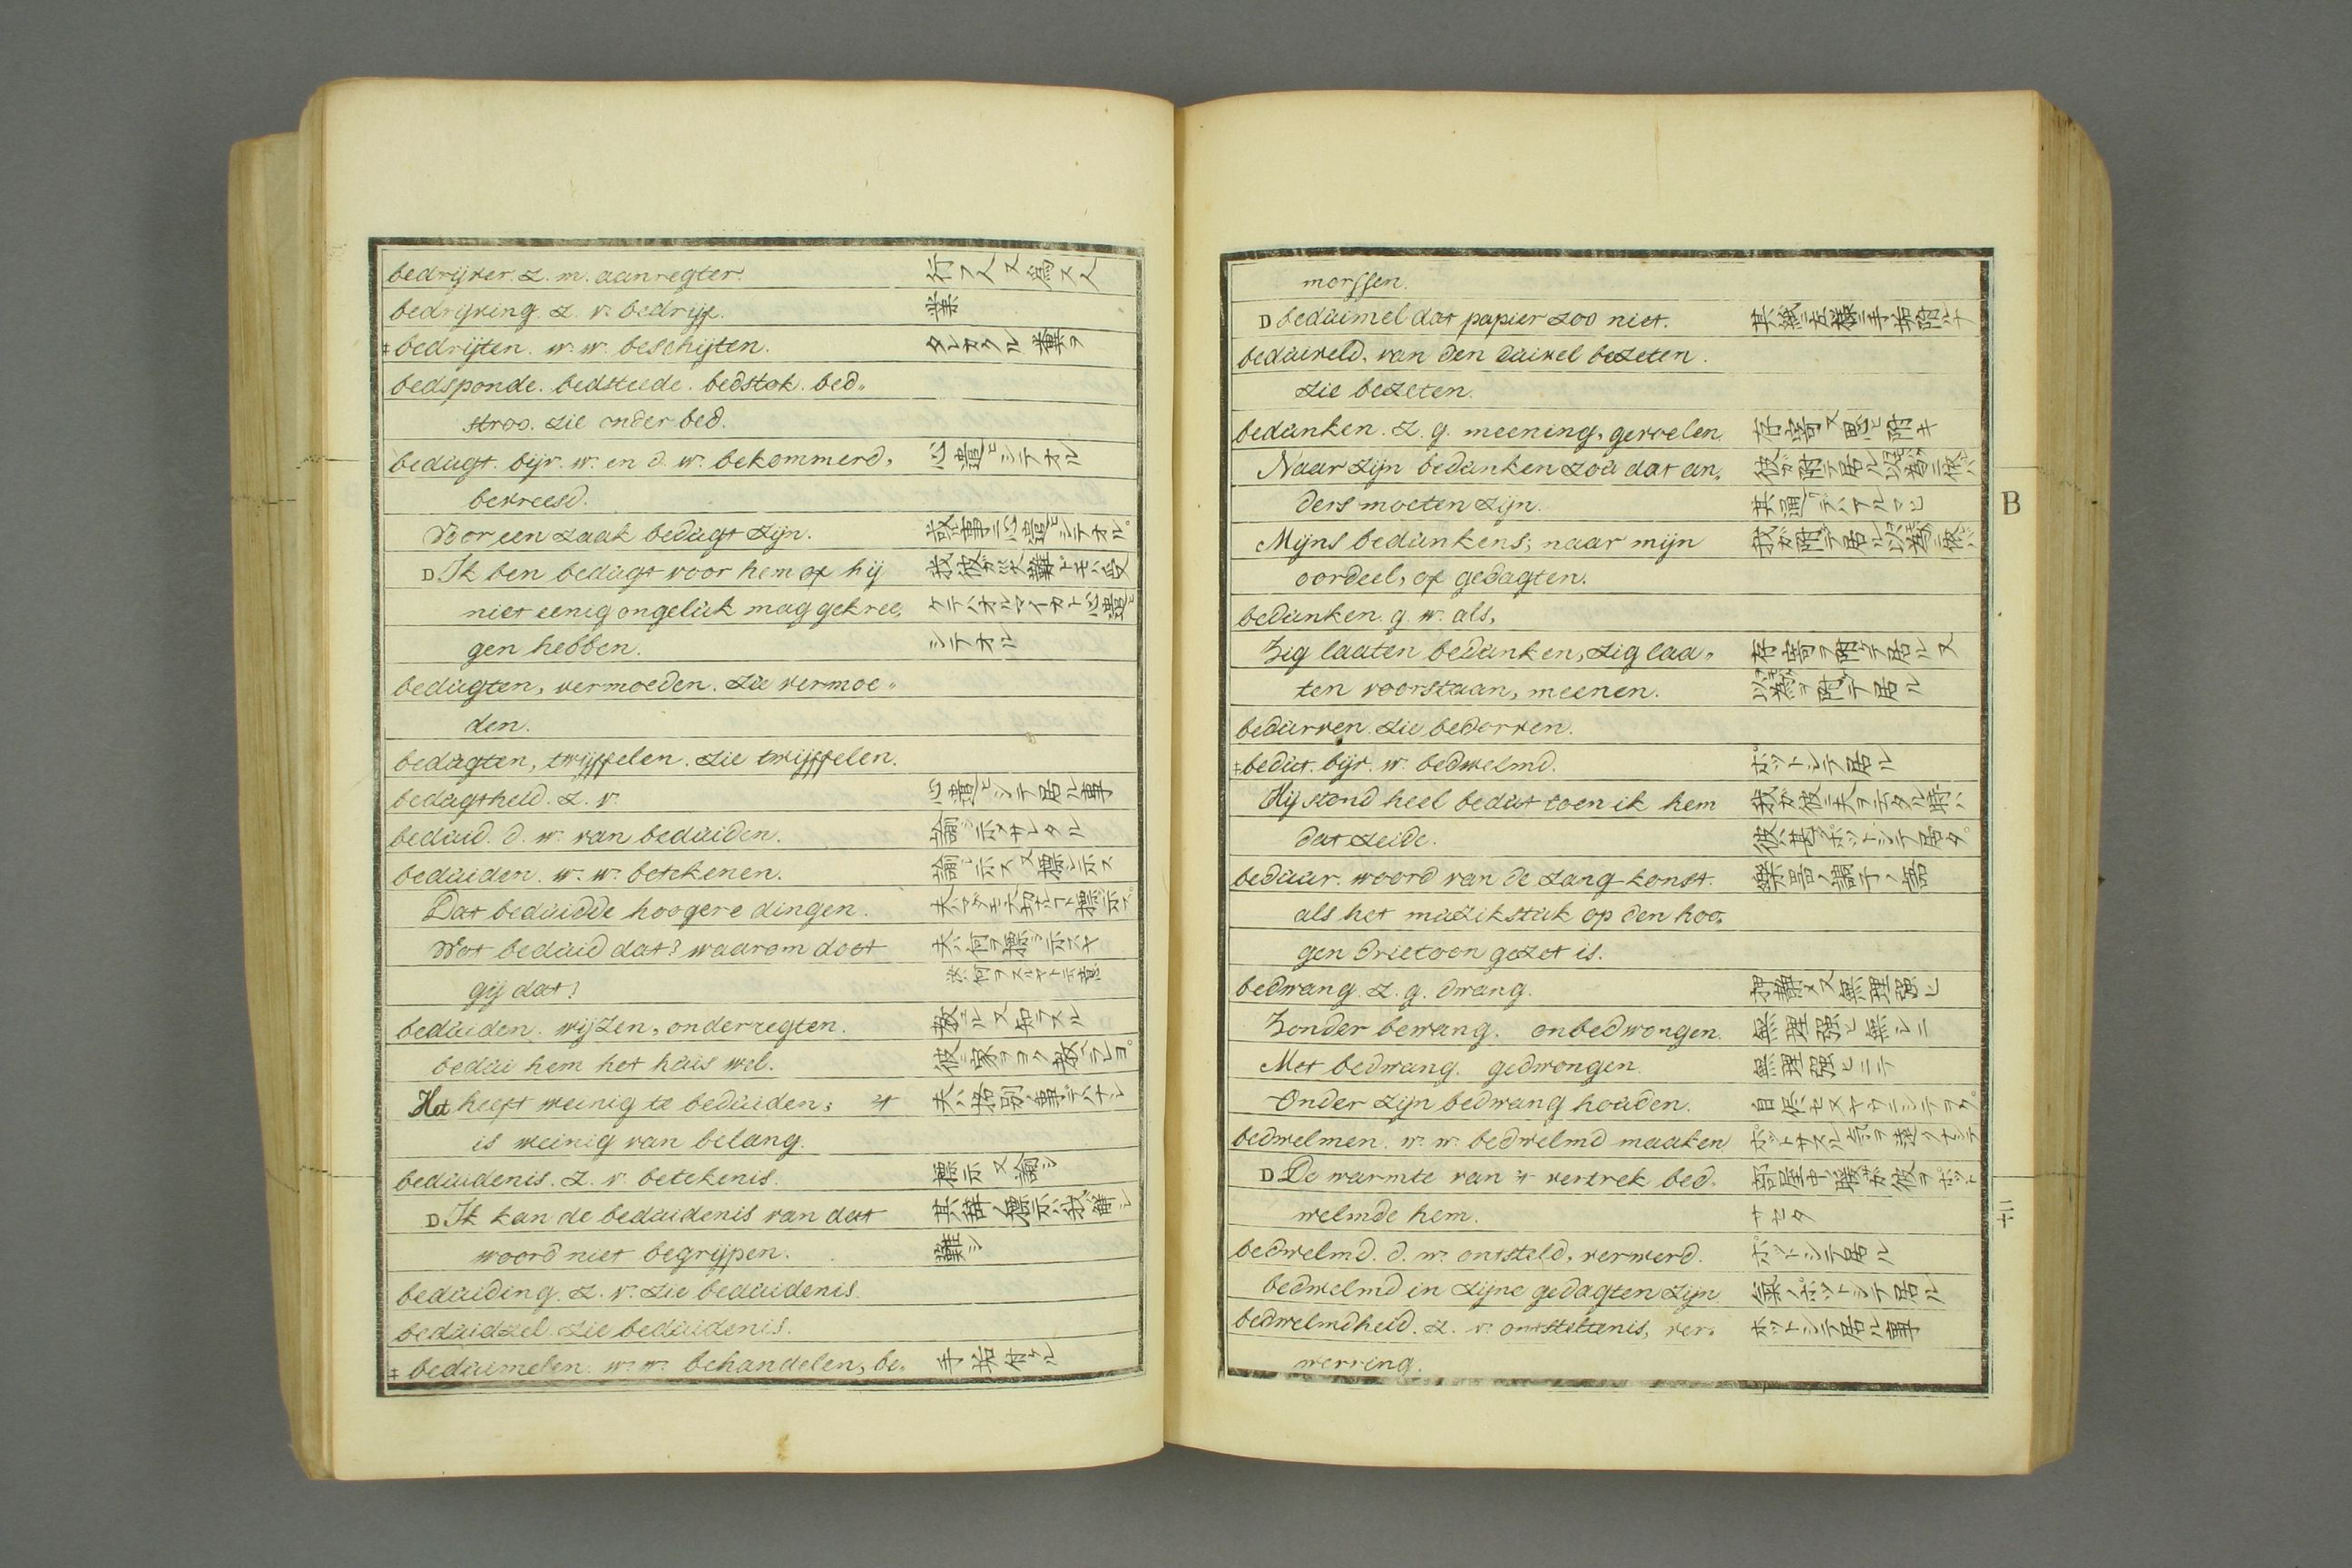 bedrijver. z. m. aanregter. 行フ人又爲ス人
bedrijving. z. v. bedrijf. 業
‡bedrijten. w. w. beschijten. タレカクル糞ヲ
bedsponde. bedsteede. bedstok. bed„
stroo. zie onder bed.
bedugt. bijv. w. en d. w. bekommerd, 心遣ヒシテオル
bevreesd.
Voor een zaak bedugt zijn. 故事ニ心遣ヒシテオル。
D Ik ben bedugt voor hem of hij 我彼ガ災難ドモハ受
niet eenig ongeluk mag gekree„ ケテハオルマイカト心遣ヒ
gen hebben. シテオル
bedugten, vermoeden. zie vermoe„
den.
bedugten, twijffelen. zie twijffelen.
bedugtheid. z. v. 心遣ヒシテ居ル事
beduid. d. w. van beduiden. 諭シ示サレタル
beduiden. w. w. betekenen. 諭シ示ス又標シ示ス
Dat beduidde hoogere dingen.
Wat beduid dat? waarom doet 夫ハ何ヲ標シ示スヤ
gij dat?
beduiden. wijzen, onderregten. 教ユル又知ラスル
bedui hem het huis wel. 彼ニ家ヲヨク教ヘラレヨ。
Het heeft weinig te beduiden; 't 夫ハ格別ノ事デハナシ
is weinig van belang.
beduidenis. z. v. betekenis. 標示又諭シ
D Ik kan de beduidenis van dat 其辭ノ標示ハ我解シ
woord niet begrijpen. 難シ
beduiding. z. v. zie beduidenis.
beduidzel. zie beduidenis.
‡ beduimelen. w. w. behandelen, be„ 手垢付ケル
morssen.
D beduimel dat papier zoo niet.
beduiveld. van den duivel bezeten.
zie bezeten.
bedunken. z. g. meening, gevoelen. 存寄又思ヒ附キ
Naar zijn bedunken zou dat an„
ders moeten zijn. 其通リデハアルマヒ
Mijns bedunkens; naar mijn
oordeel, of gedagten.
bedunken. g. w. als,
Zig laaten bedunken, zig laa„ 存寄ヲ附ケテ居ル又
ten voorstaan, meenen. 以爲ヲ附ケテ居ル
bedurven. zie bedorven.
‡bedut. bijv. w. bedwelmd. ポットシテ居ル
Hij stond heel bedut toen ik hem 我ガ彼ニ夫ヲ云タル時ハ
dat zeide. 彼ハ甚ダポットシテ居タ。
beduur. woord van de zang-konst. 樂品ノ調子ノ語
als het muzikstuk op den hoo„
gen drietoon gezet is.
bedwang. z. g. dwang. 押靜メ又無理强ヒ
Zonder bewang. onbedwongen. 無理强ヒ無シニ
Met bedwang. gedwongen. 無理强ヒニテ
Onder zijn bedwang houden.
bedwelmen. w. w. bedwelmd maaken
D De warmte van 't vertrek bed„ 部屋ノ中ノ暖ガ彼ヲポット
welmde hem. サセタ
bedwelmd. d. w. ontsteld, verwerd. ポットシテ居ル
bedwelmd in zijne gedagten zijn 氣ノポットシテ居ル
bedwelmdheid. z. v. ontsteltenis, ver„ ホットシテ居ル事
werring.
B